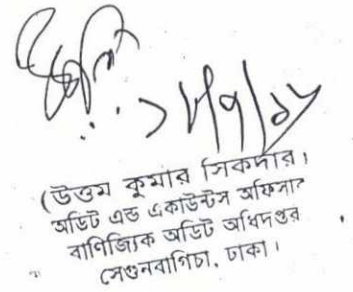 ১৮/৭/১৮
(উত্তম কুমার সিকদার।
অডিট এন্ড একাউন্টস অফিসার
বাণিজ্যিক অডিট অধিদপ্তর
সেগুনবাগিচা, ঢাকা।